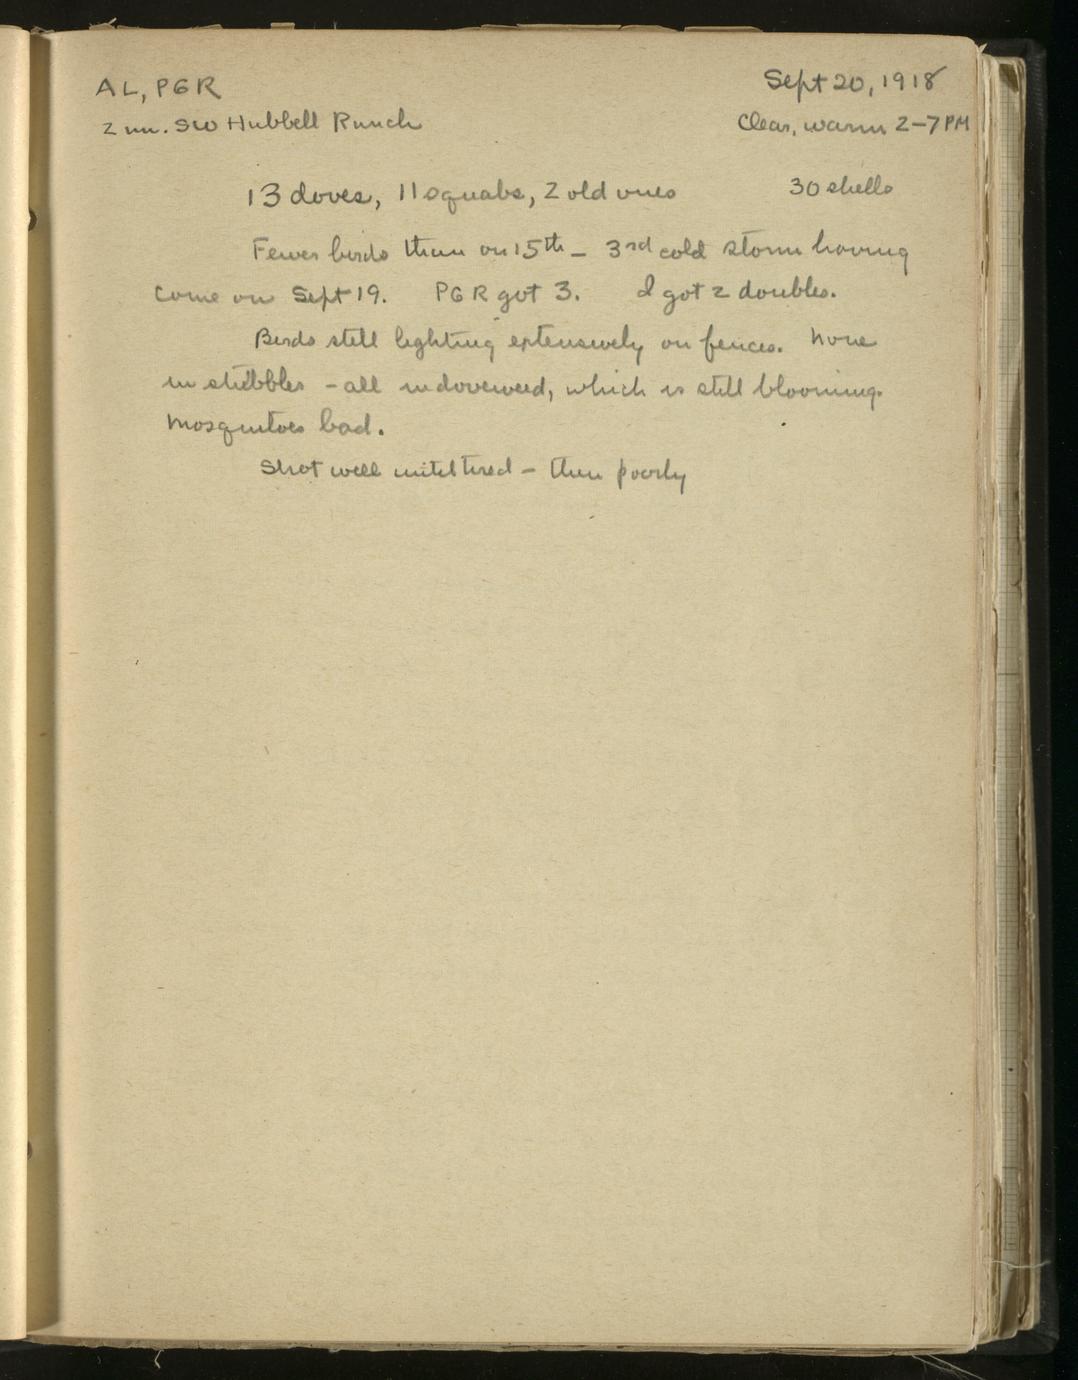 AL, PGR
Sept 20, 1918
2 mi. SW Hubbell Ranch
Clear, warm 2-7 PM
13 doves, 11 squabs, 2 old ones 30 shells
Fewer birds than on 15th - 3rd cold storm having
come on Sept 19. PGR got 3. I got 2 doubles.
Birds still lighting extensively on fences. None
in stubbles - all in doveweed, which is still blooming.
Mosquitoes bad.
Shot well until tired - then poorly